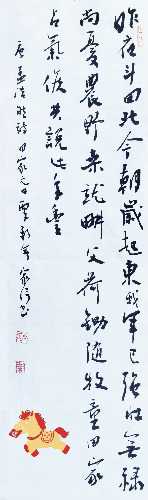 昨夜斗回北今朝歲起東我年已強仕無祿
尚憂農野就畊父荷鋤随牧童田家
占氣候共説此年豐
唐孟浩然詩田家元日